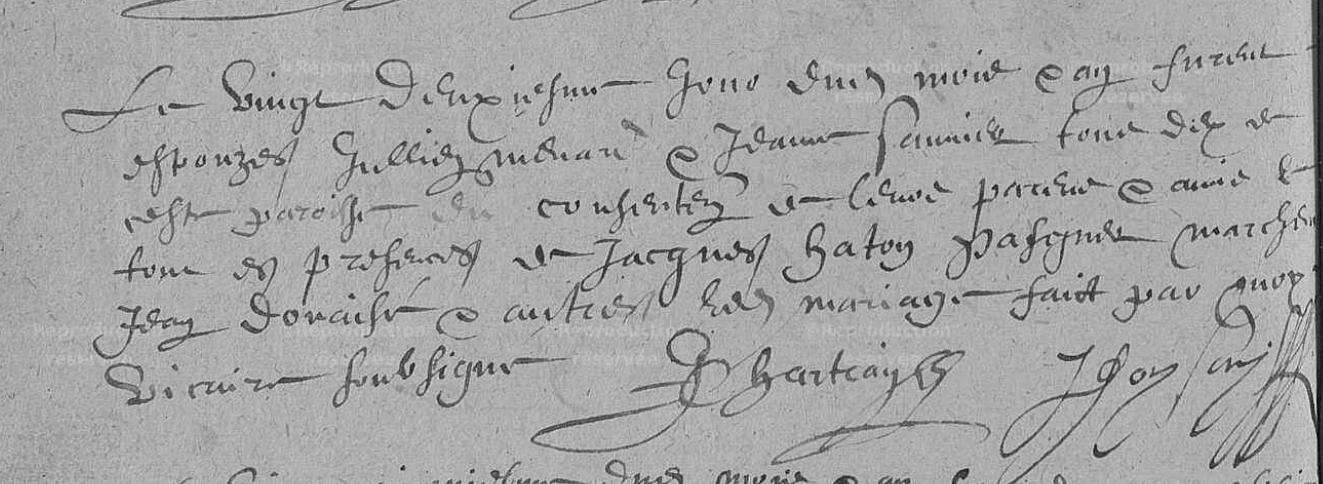 Le vingt deuxiesme jour dud mois & an furent
espouzes Jullien Menard & Jeanne Saunier tous deux de
ceste paroisse du consentem de leurs parens & amis &
tout es presences de Jacques Haton Pasquer Marche
Jean Doraise & autres led mariage faict par moy
vicaire soubsigne
dud mois & an